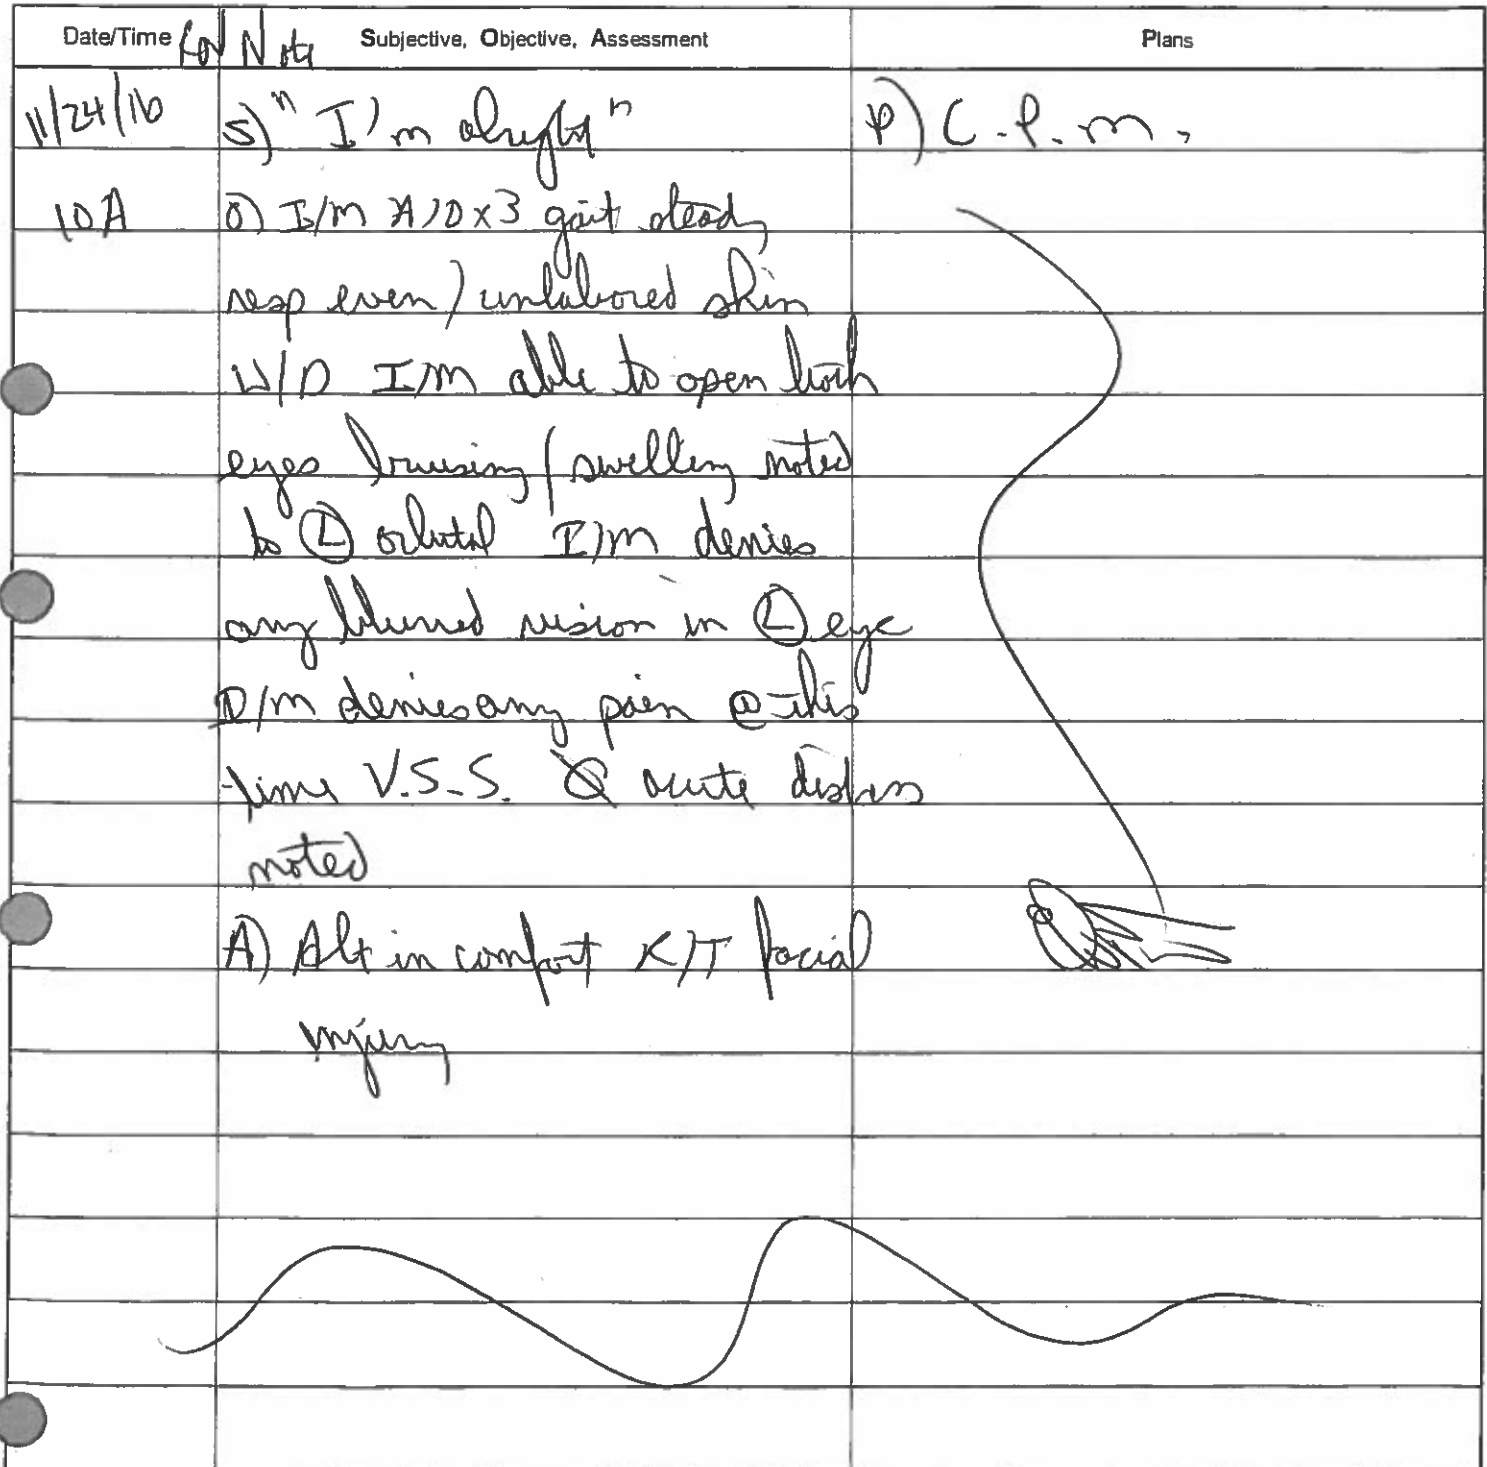 Date/Time Subjective, Objective, Assessment Plans
Note
11/24/16 S) "I'm alright" P) C.P.M.
10A O) I/M A/O x3 gait steady
resp even/unlabored skin
W/D I/M able to open both
eyes bruising/swelling noted
to Ⓛ orbital I/M denies
any blurred vision in Ⓛ eye
I/M denies any pain @ this
time V.S.S. Ø acute distress
noted
A) Alt in comfort R/T facial
injury